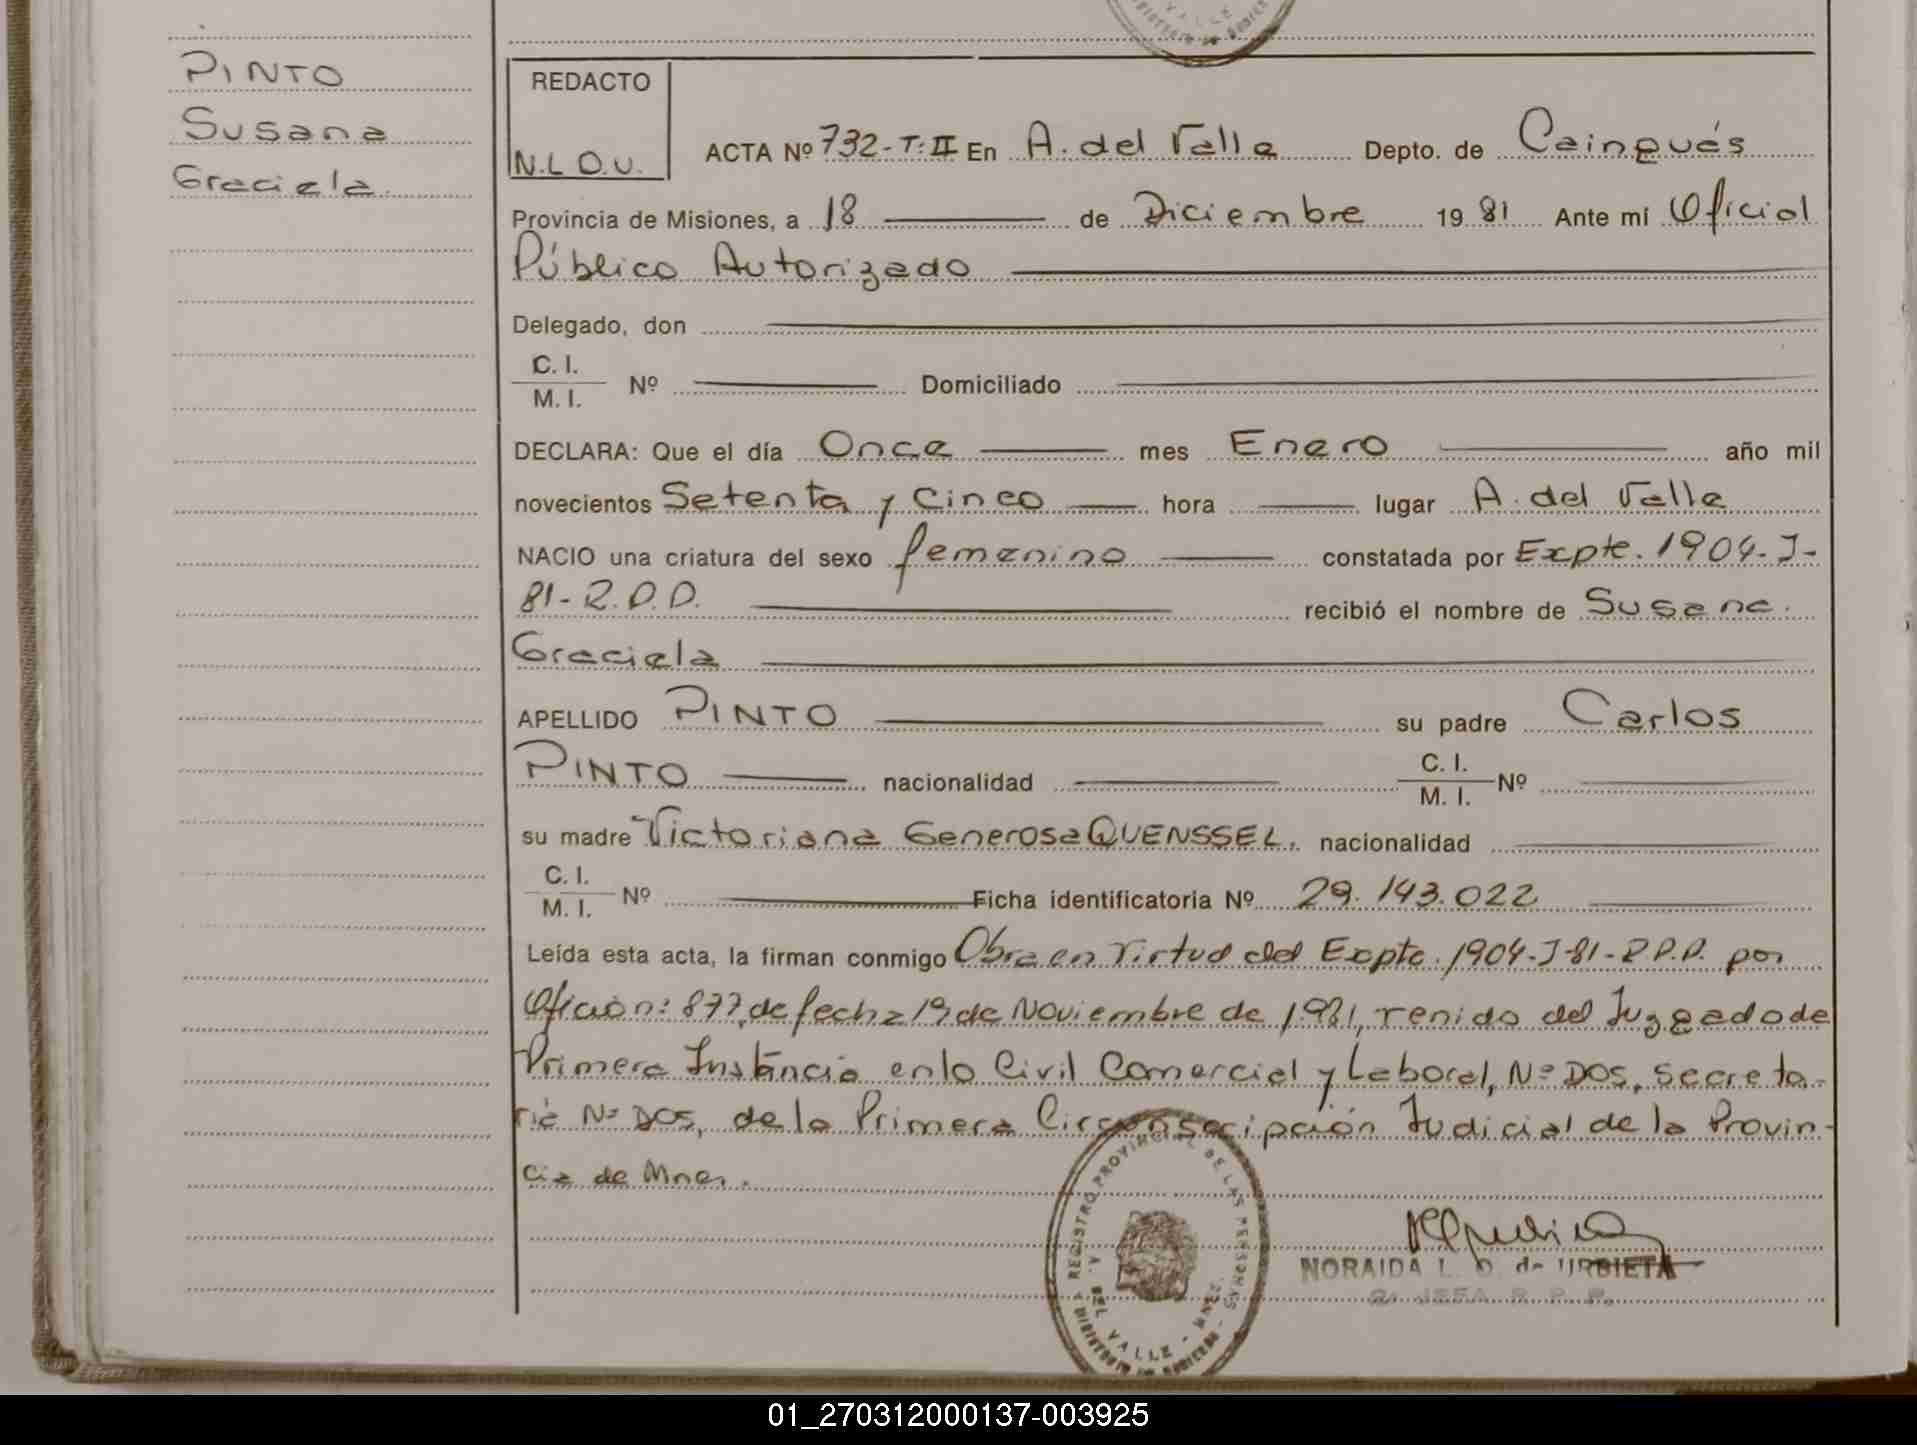 PINTO
Susana
Graciela.
REDACTO
N.L.O.U.
ACTA Nº 732-T:II En A. del Valle Depto. de Cainguás
Provincia de Misiones, a 18 de Diciembre 1981 Ante mi Oficial
Público Autorizado
Delegado, don
C. I.
M. I. Nº Domiciliado
DECLARA: Que el día Once mes Enero año mil
novecientos Setenta y Cinco hora lugar A. del Valle
NACIO una criatura del sexo femenino constatada por Expte. 1904-J-
81-R.P.P. recibió el nombre de Susana
Graciela
APELLIDO PINTO su padre Carlos
PINTO nacionalidad C. I.
M. I. Nº
su madre Victoriana Generosa QUENSSEL, nacionalidad
C. I.
M. I. Nº Ficha identificatoria Nº 29.143.022
Leída esta acta, la firman conmigo Obra en Virtud del Expte. 1904-J-81-R.P.P. por
Oficio n: 877, de fecha 19 de Noviembre de 1981, venido del Juzgado de
Primera Instancia en lo Civil Comercial y Laboral, Nº DOS, secreta-
ria Nº DOS, de la Primera Circunscripción Judicial de la Provin-
cia de Mnes.
REGISTRO PROVINCIAL DE LAS PERSONAS
DEL VALLE - MNES.
NORAIDA L. O. de URBIETA
JEFA R. P. P.
01_270312000137-003925